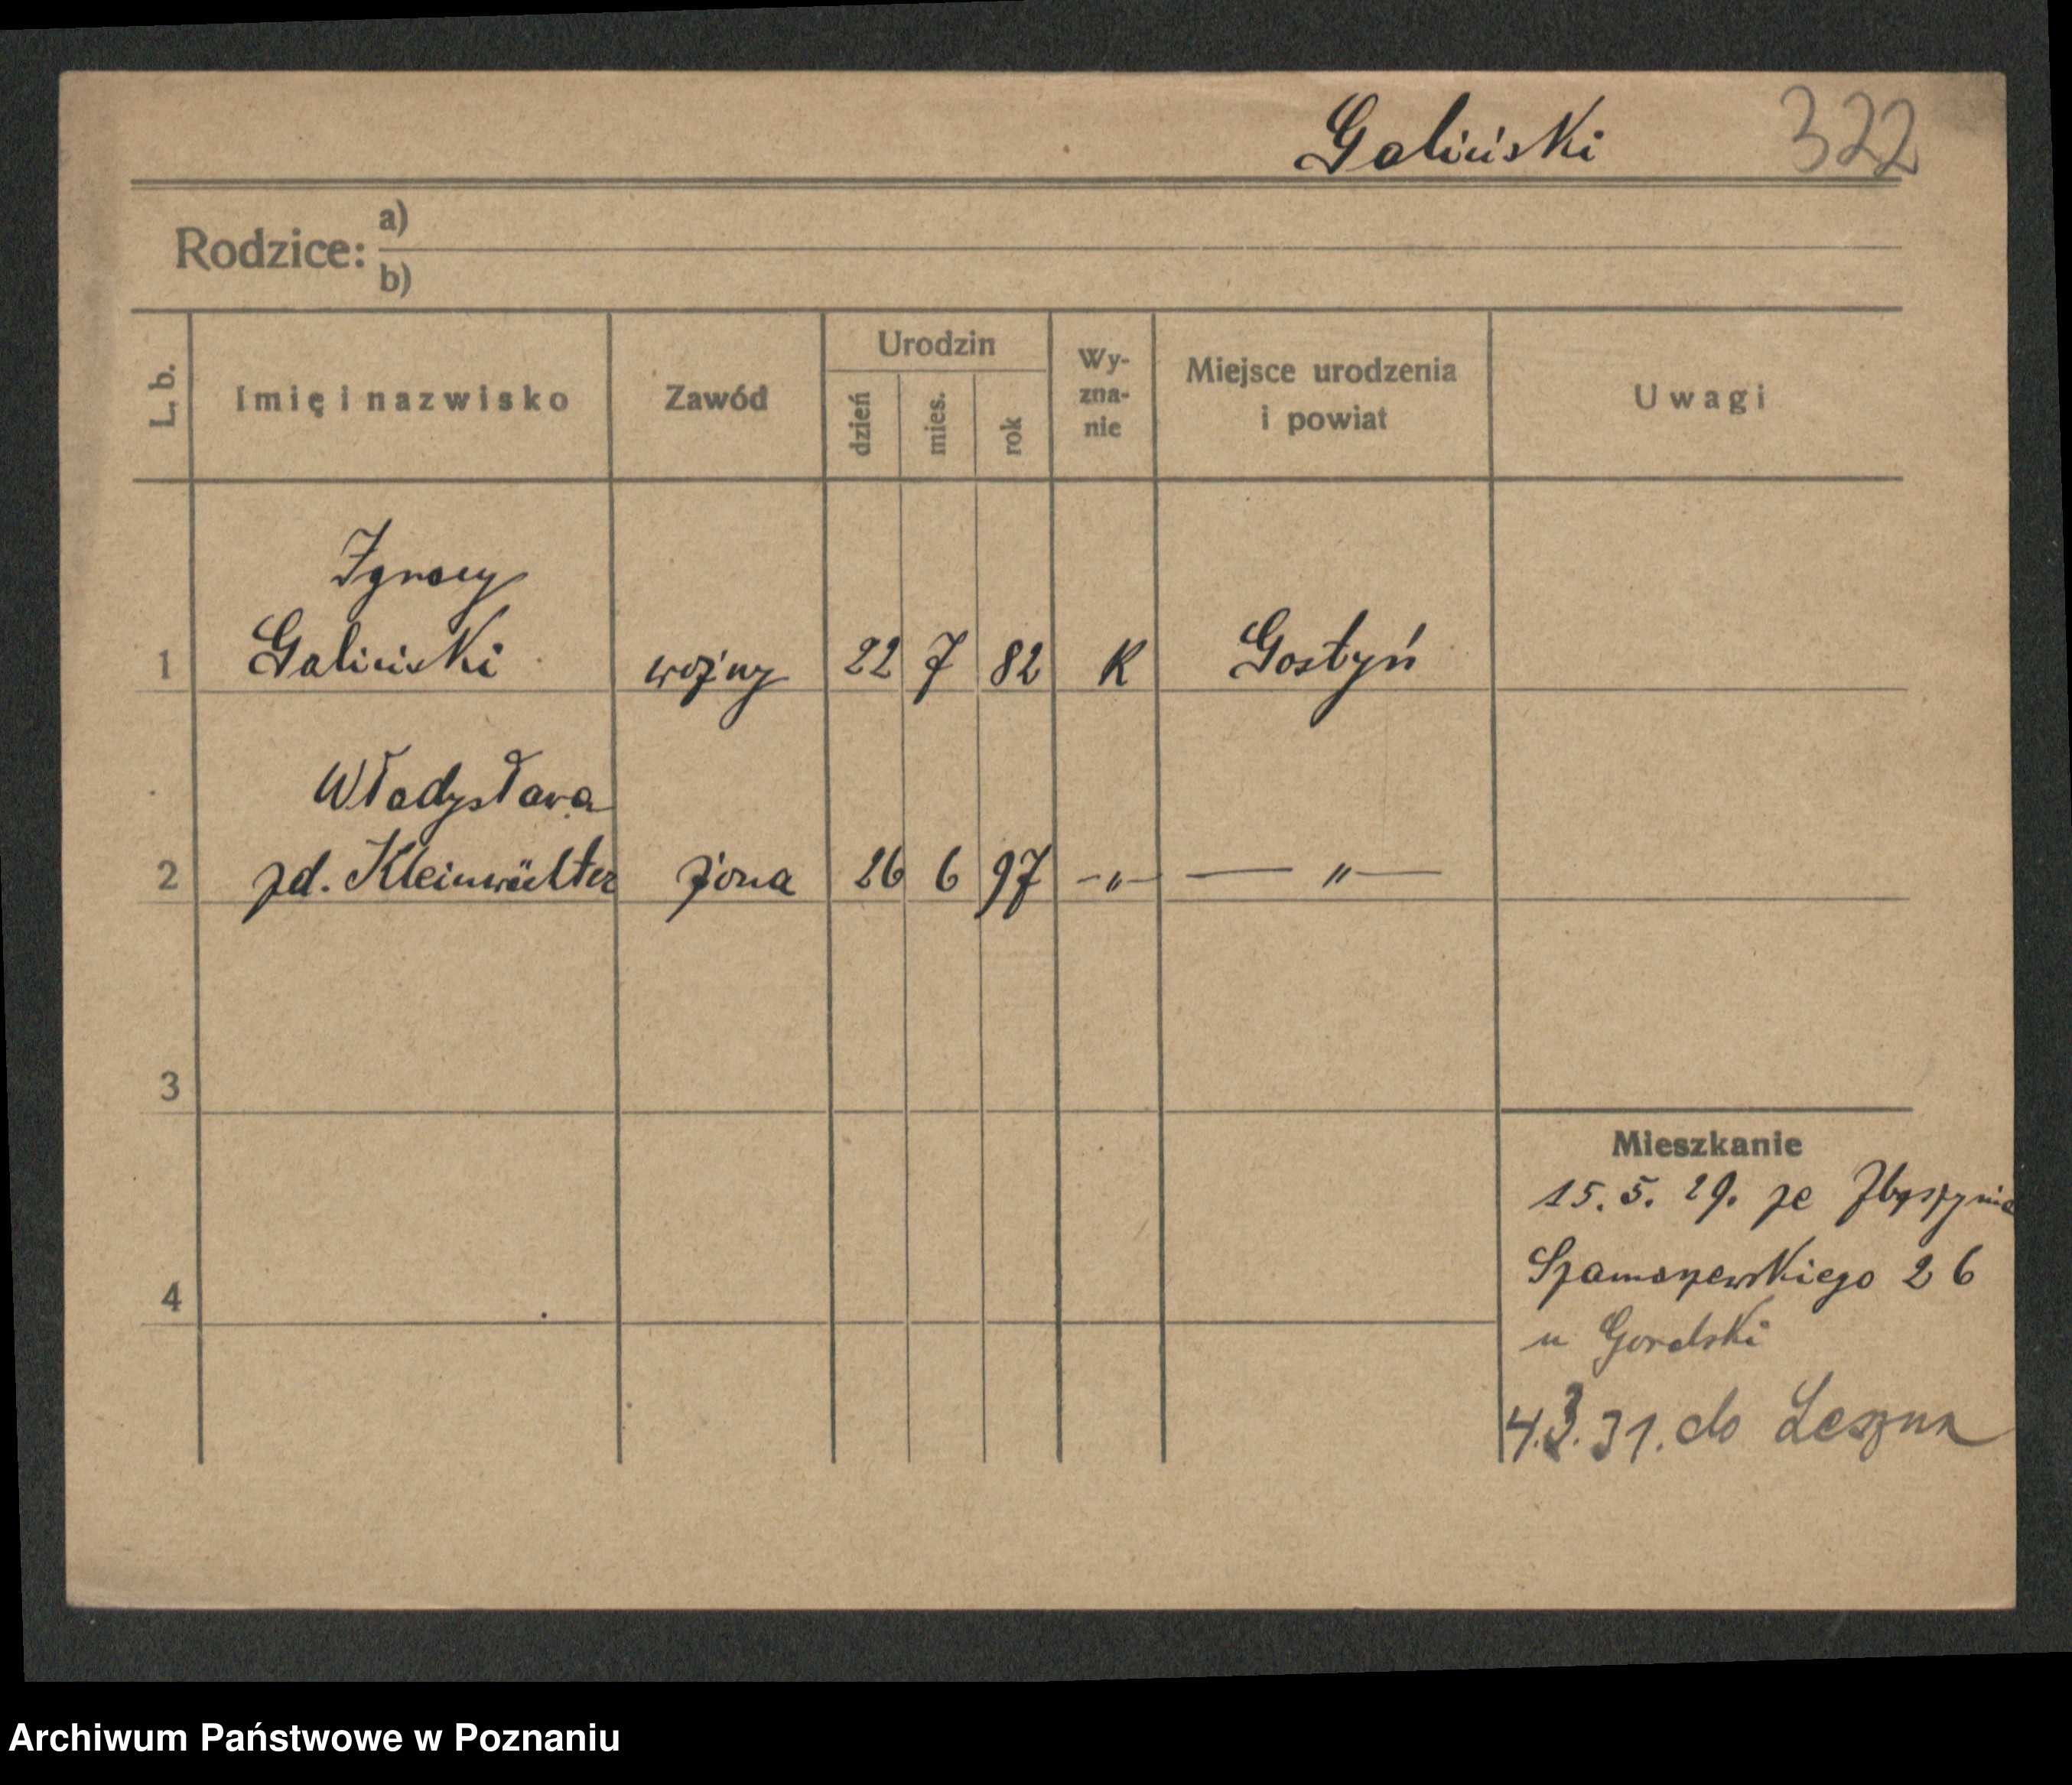 Galiński 322
Rodzice: a)
b)
L. b. Imię i nazwisko Zawód Urodzin dzień mies. rok Wyznanie Miejsce urodzenia i powiat Uwagi
Ignacy
1 Galiński woźny 22 7 82 K Gostyń
Władysława
2 zd. Kleinwächter żona 26 6 97 -"- — " —
3
Mieszkanie
15. 5. 29. ze Zbąszynia
Szamarzewskiego 26
4
u Goralski
4.3.31. do Leszna
Archiwum Państwowe w Poznaniu